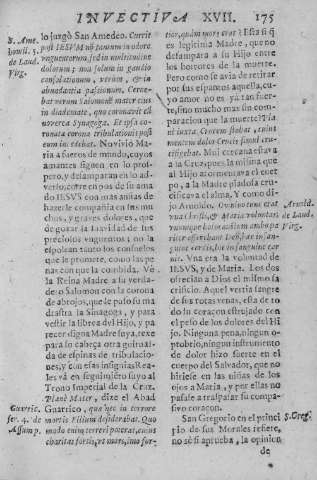 INVECTIVA XVII. 175
S. Ame.
homil. 5.
de Laud.
Virg.
lo juzgò San Amedeo. Currit
post IESUM nõ tantum in odore
unguentorum, sed in multitudine
dolorum; nõ solum in gaudio
consolationum, verùm, & in
abundantia passionum. Cerne-
bat verum Salomonẽ mater eius
in diademate, quo coronavit eũ
noverca Synagoga. Et ipsa co-
ronata corona tribulationis post
eum in
No vivio Ma-
ria a fueros de mundo, cuyos
amantes siguen en lo prospe-
ro, y desamparan en lo ad-
verso, corre en pos de su ama
do IESVS con mas ansias de
hazerle compañia en los mu
chos, y graves dolores, que
de gozar la suavidad de sus
preciosos vnguentos; no la
espolean tanto los consuelos
que le promete, como las pe
nas con que la combida. Vè
la Reina Madre a su verda-
dero Salomon con la corona
de abrojos, que le puso su ma
drastra la Sinagoga, y para
vestir la librea del Hijo, y pa
recer signa Madre suya, texe
para su cabeça otra guirnal-
da de espinas de tribulacio-
nes, y con essas insignias Rea-
les và en seguimiẽto suyo al
Trono Imperial de la Cruz.
Planè Mater, dize el Abad
Guarric.
ser. 4. de
Assump.
Guarrico, quæ nec in terrore
mortis Filium deserebat. Quo
modo enim terreri poterat, cuius
charitas fortis, vt mors, imo for-
tior, quàm mors erat? Essa si q̃
es legitima Madre, que no
desampara a su Hijo entre
los horrores de la muerte.
Pero como se avia de retirar
por sus espantos aquella, cu-
yo amor no es ya tan fuer-
te, sino mucho mas sin com-
paracion que la muerte?
juxta Crucem stabat, cuius
mentem dolor Crucis simul cru-
cifigebat. Mui cercana estava
a la Cruz, pues la misma que
al Hijo atormentava el cuer
po, a la Madre piadosa cru-
cificava el alma. Y como di-
Arnold.
Virg.
jo Arnoldo. Omnino tunc erat
una Christi, & Mariæ voluntas,
unumque holocaustum ambo pa
riter offerebant Deo; hæc in san-
guine cordis, hic in sanguine car
nis. Vna era la voluntad de
IESVS, y de Maria. Los dos
ofrecian a Dios el mismo sa
crificio. Aquel vertia sangre
de sus rotas venas, esta de to
do su coraçon estrujado con
el peso de los dolores del Hi
jo. Ninguna pena, ningun o-
probrio, ningun instrumento
de dolor hizo fuerte en el
cuerpo del Salvador, que no
hiriesse en las niñas de los
ojos a Maria, y por ellas no
pasase a traspasar su compa-
sivo coraçon.
S. Greg.
San Gregorio en el princi
pio de sus Morales refiere,
no sè si aprueba, la opinion
de